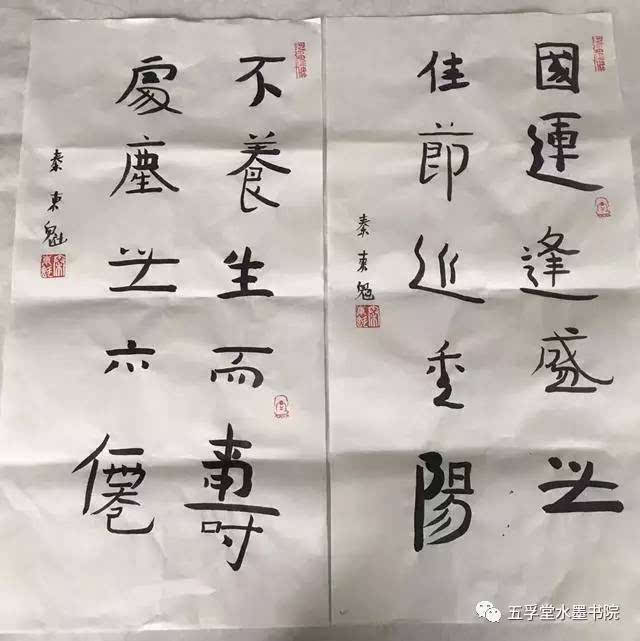 國運逢盛世
佳節近重陽
秦東魁
不養生而壽
處塵世亦僊
秦東魁
五孚堂水墨书院